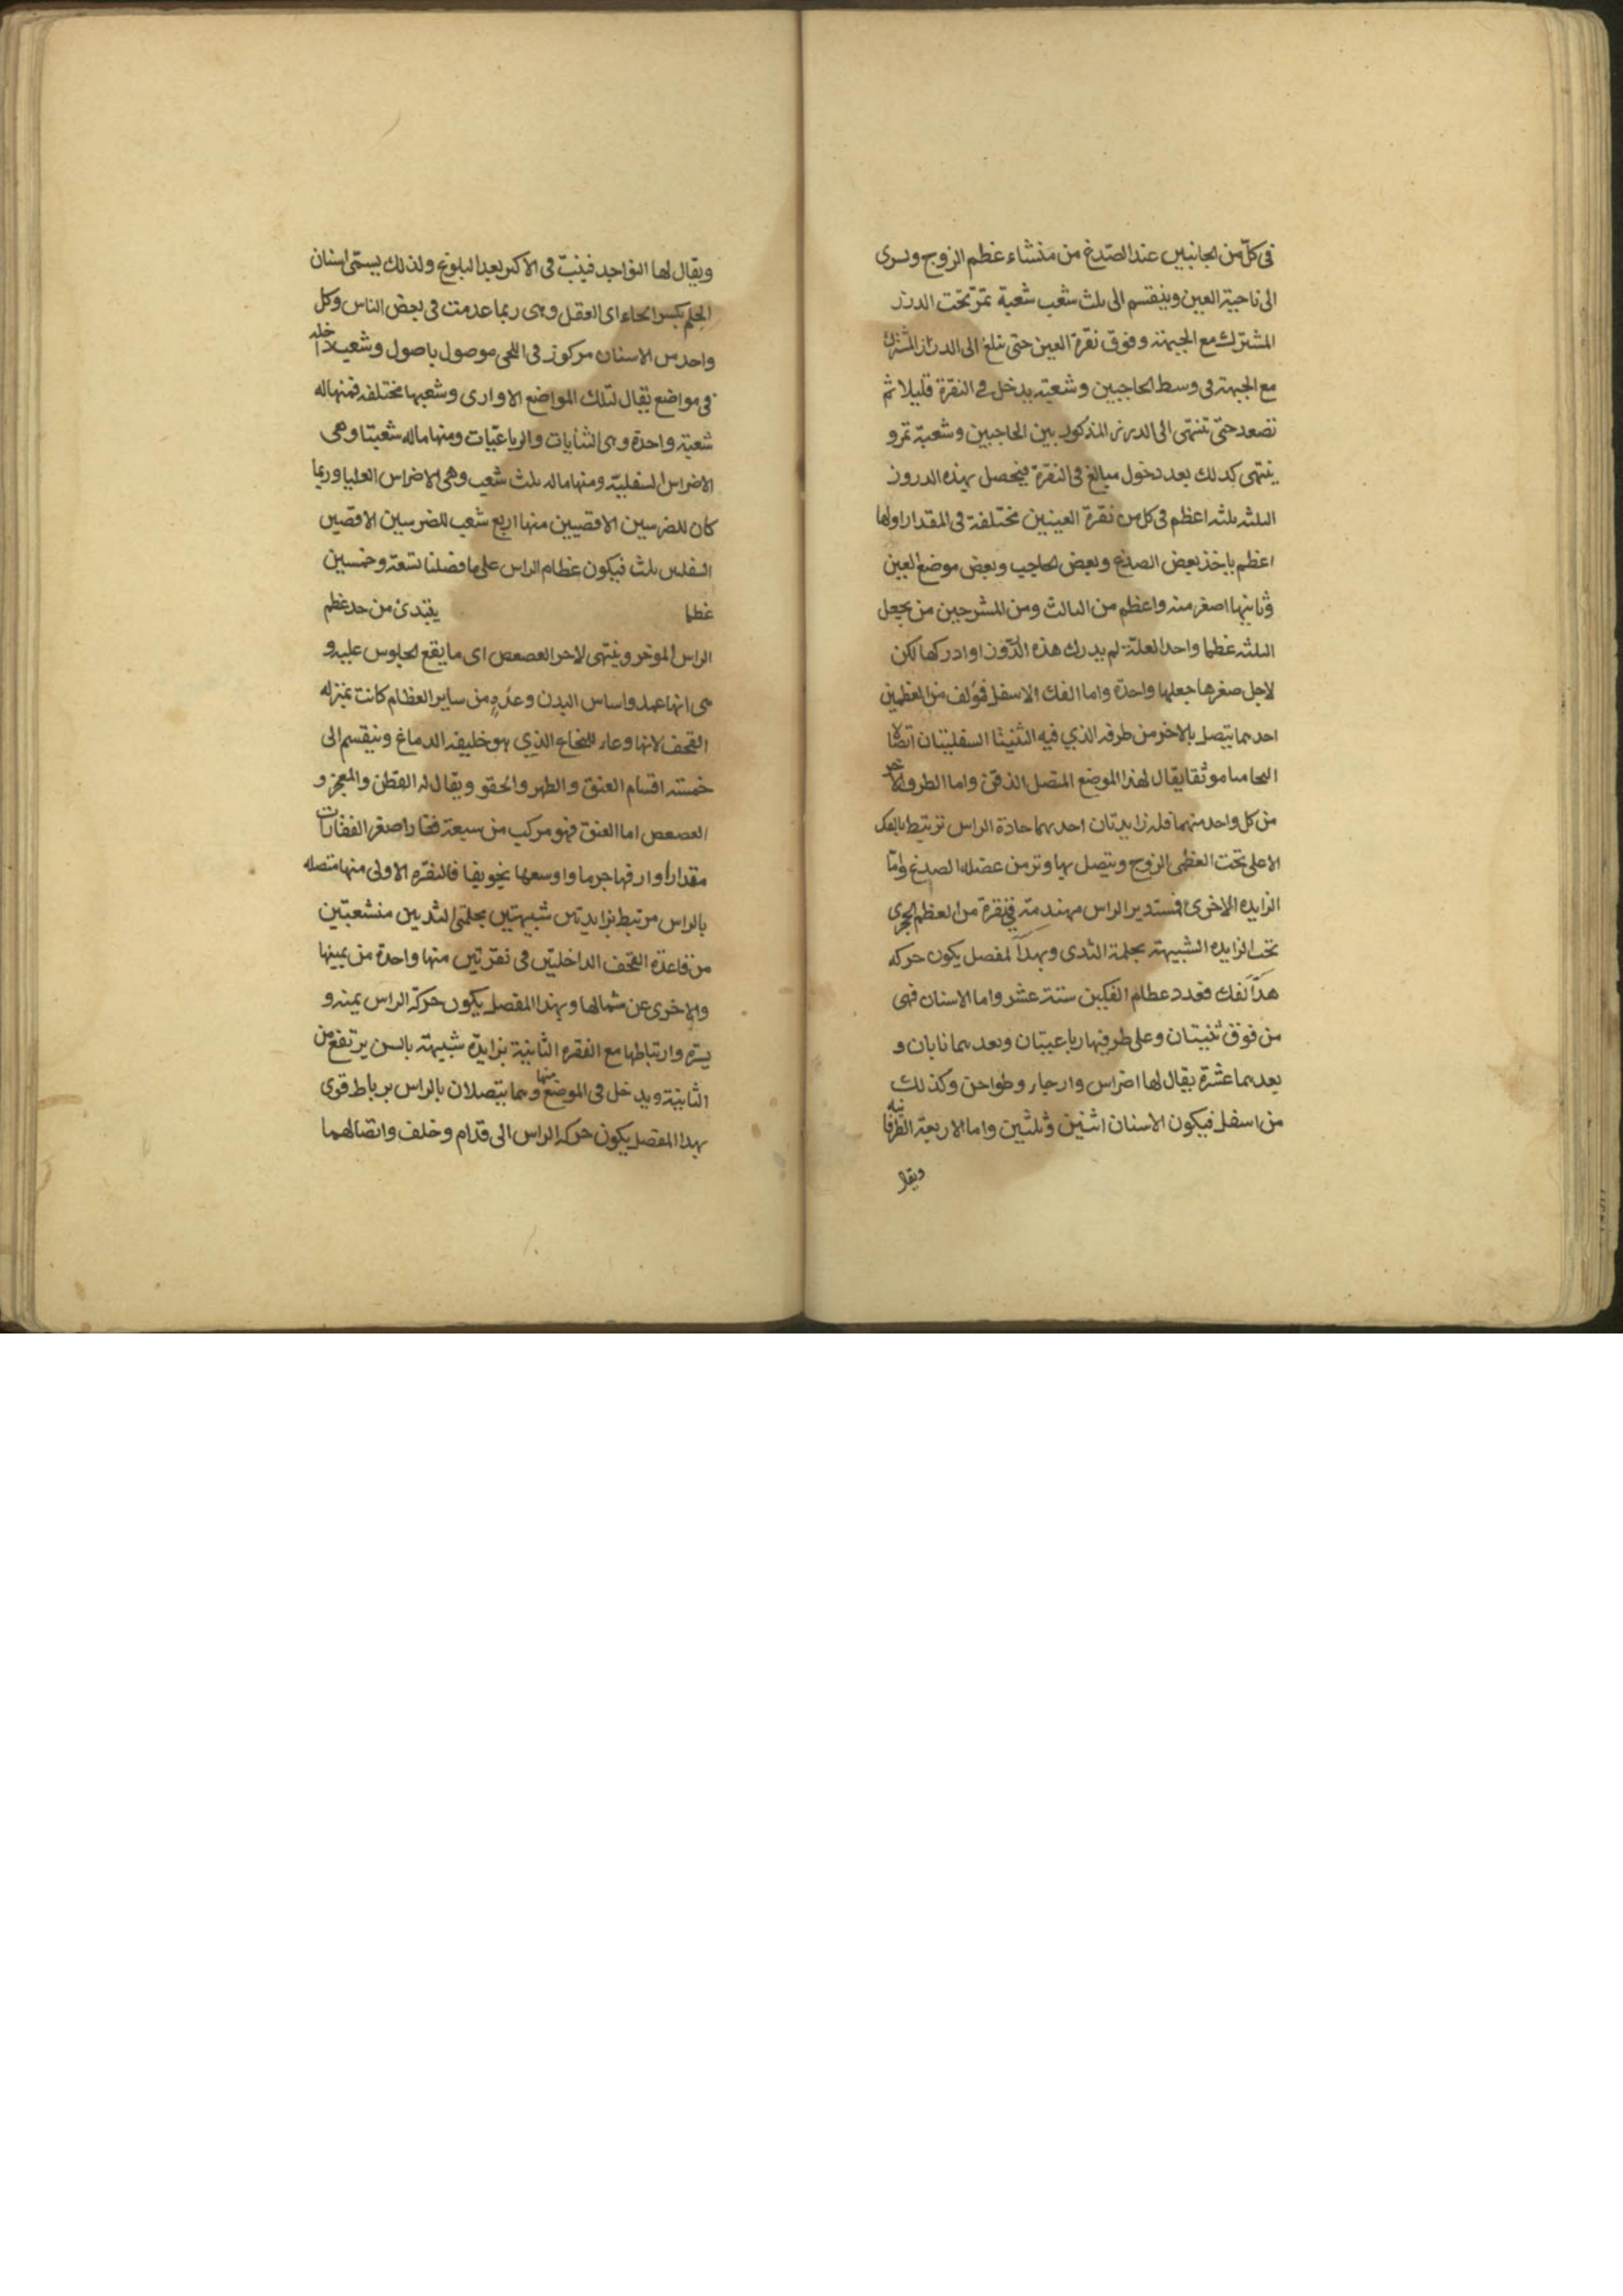 فى كلّ من الجانبين عند الصّدغ من منشاء عظم الزوج ويسرى
الى ناحية العين وينقسم الى ثلث شعب شعبة تمرّ تحت الدرز
المشترك مع الجبهة وفوق نقرة العين حتى تبلغ الى الدرز المشترك
مع الجبهة فى وسط الحاجبين وشعبة يدخل فى النقرة قليلا ثم
تصعد حتى تنتهى الى الدرز المذكور بين الحاجبين وشعبة تمر و
ينتهى كذلك بعد دخول مبالغ فى النقرة فيحصل بهذه الدروز
الثلثه ثلثه اعظم فى كل من نقرة العينين مختلفة فى المقدار اولها
اعظم ياخذ بعض الصدغ وبعض الحاجب وبعض موضع العين
وثانيها اصغر منه واعظم من الثالث ومن المشرحين من يجعل
الثلثه عظما واحدا لعلة لم يدرك هذه الدّروز او ادركها لكن
لاجل صغرها جعلها واحدة واما الفك الاسفل فمؤلف من العظمين
احدهما يتصل بالاخر من طرفه الذي فيه الثنيتا السفليتان اتصالا
التحاميا موثقا يقال لهذا الموضع المتصل الذقن واما الطرف الاخر
من كل واحد منهما فله زايدتان احدهما حادة الراس تربتط بالفك
الاعلى تحت العظمى الزوج ويتصل بها وتر من عضله الصدغ وامّا
الزايده الاخرى فمستدير الراس مهندمة فى نقرة من العظم الحجرى
تحت الزايده الشبيهة بحلمة الثدى وبهذا المفصل يكون حركه
هذا الفك فعدد عظام الفكين ستة عشر واما الاسنان فهى
من فوق ثنيتان وعلى طرفيها رباعيتان وبعدهما نابان و
بعدهما عشرة يقال لها اضراس وارحاء وطواحن وكذلك
من اسفل فيكون الاسنان اثنين وثلثين واما الاربعة الطرفانيه
ويقال
ويقال لها النواجد فينبت فى الاكثر بعد البلوغ ولذلك يسمّى اسنان
الحِلم بكسر الحاء اى العقل وهى ربما عدمت فى بعض الناس وكل
واحد من الاسنان مركوز فى اللحى موصول باصول وشعب داخله
فى مواضع يقال لتلك المواضع الاوارى وشعبها مختلفه فمنها له
شعبة واحدة وهى الثنايات والرباعيّات ومنها ماله شعبتا وهى
الاضراس السفلية ومنها ماله ثلث شعب وهى الاضراس العليا وربما
كان للضرسين الاقصيين منها اربع شعب للضرسين الاقصين
السفلين ثلث فيكون عظام الراس على ما فصلنا تسعة وخمسين
عظما يبتدئ من حد عظم
الراس الموخر وينتهى لاخر العصعص اى ما يقع الجلوس عليه و
هى انها عمد واساس البدن وعدّه من ساير العظام كانت بمنزله
القحف لانها وعاء للنخاع الذي هو خليفه الدماغ وينقسم الى
خمسه اقسام العنق والظهر والحقو ويقال له القطن والعجز و
العصعص اما العنق فهو مركب من سبعة فقارا صغر الفقارات
مقدارا وارقها جرما واوسعها تجويفا فالفقره الاولى منها متصله
بالراس مرتبط بزايدتين شبيهتين بحلمتى الثديين منشعبتين
من قاعدة القحف الداخلتين فى نقرتين منها واحدة من يمينها
والاخرى عن شمالها وبهذا المفصل يكون حركة الراس يمنه و
يسره وارتباطها مع الفقره الثانية بزايدة شبيهة بالسن يرتفع من
الثانية ويدخل فى الموضع منها وهما يتصلان بالراس برباط قوى
بهذا المفصل يكون حركه الراس الى قدّام وخلف واتصالهما